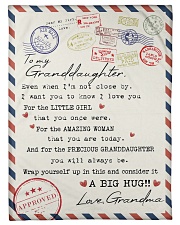 To my
Granddaughter,
Even when I'm not close by.
I want you to know I love you
For the LITTLE GIRL
that you once were.
For the AMAZING WOMAN
that you are today.
And for the PRECIOUS GRANDDAUGHTER
you will always be.
Wrap yourself up in this and consider it
A BIG HUG!!
Love, Grandma
APPROVED